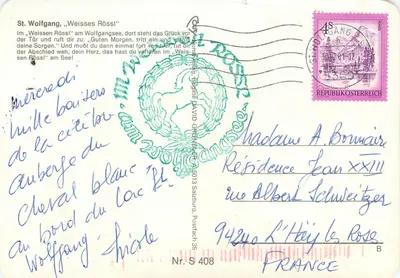 St. Wolfgang, „Weisses Rössl"
Im „Weissen Rössl" am Wolfgangsee, dort steht das Glück vor
der Tür und ruft dir zu: „Guten Morgen, tritt ein und vergiß
deine Sorgen." Und mußt du dann einmal fort von hier, tut dir
der Abschied so weh; dein Herz, das hast du verloren im „Weis-
sen Rössl" am See!
mercredi
mille baisers
de la célèbre
auberge du
cheval blanc
au bord du lac St.
Wolfgang. Nicole
IM WEISSEN RÖSSL
4 S
REPUBLIK ÖSTERREICH
Madame A. Bonnaire
Résidence Jean XXIII
rue Albert Schweitzer
94240 L'Haÿ les Roses
FRANCE
Nr. S 408
B